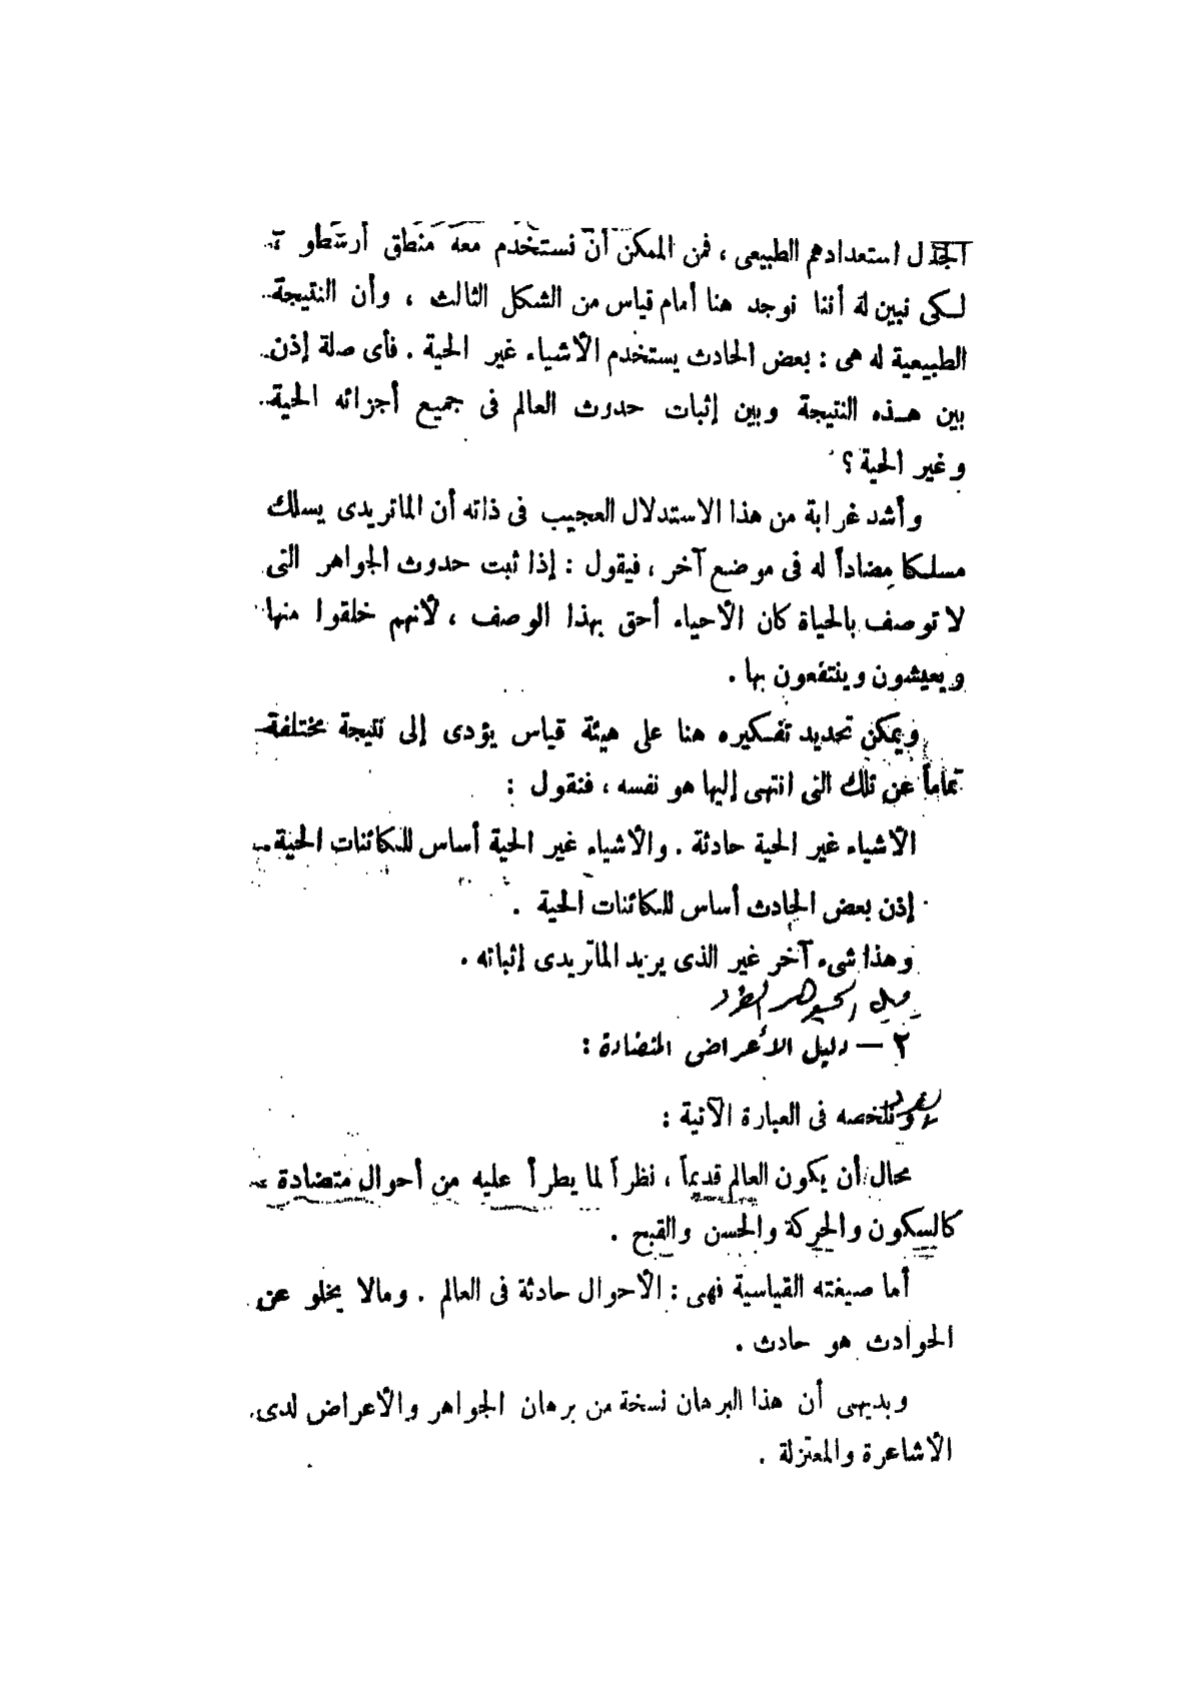 الجدل استعدادهم الطبيعى ، فمن الممكن أن نستخدم معه منطق أرسطو ،
لكى نبين له أننا نوجد هنا أمام قياس من الشكل الثالث ، وأن النتيجة
الطبيعية له هى : بعض الحادث يستخدم الأشياء غير الحية . فأى صلة إذن
بين هذه النتيجة وبين إثبات حدوث العالم فى جميع أجزائه الحية
وغير الحية ؟
وأشد غرابة من هذا الاستدلال العجيب فى ذاته أن الماتريدى يسلك
مسلكا مضاداً له فى موضع آخر ، فيقول : إذا ثبت حدوث الجواهر التى
لا توصف بالحياة كان الأحياء أحق بهذا الوصف ، لأنهم خلقوا منها
ويعيشون وينتفعون بها .
ويمكن تحديد تفكيره هنا على هيئة قياس يؤدى إلى نتيجة مختلفة
تماماً عن تلك التى انتهى إليها هو نفسه ، فنقول :
الأشياء غير الحية حادثة . والأشياء غير الحية أساس للكائنات الحية
إذن بعض الحادث أساس للكائنات الحية .
وهذا شىء آخر غير الذى يريد الماتريدى إثباته .
الجوهر الفرد
٢ — دليل الأعراض المتضادة :
ونلخصه فى العبارة الآتية :
محال أن يكون العالم قديماً ، نظراً لما يطرأ عليه من أحوال متضادة
كالسكون والحركة والحسن والقبح .
أما صيغته القياسية فهى : الأحوال حادثة فى العالم . ومالا يخلو عن
الحوادث هو حادث .
وبديهى أن هذا البرهان نسخة من برهان الجواهر والأعراض لدى
الأشاعرة والمعتزلة .